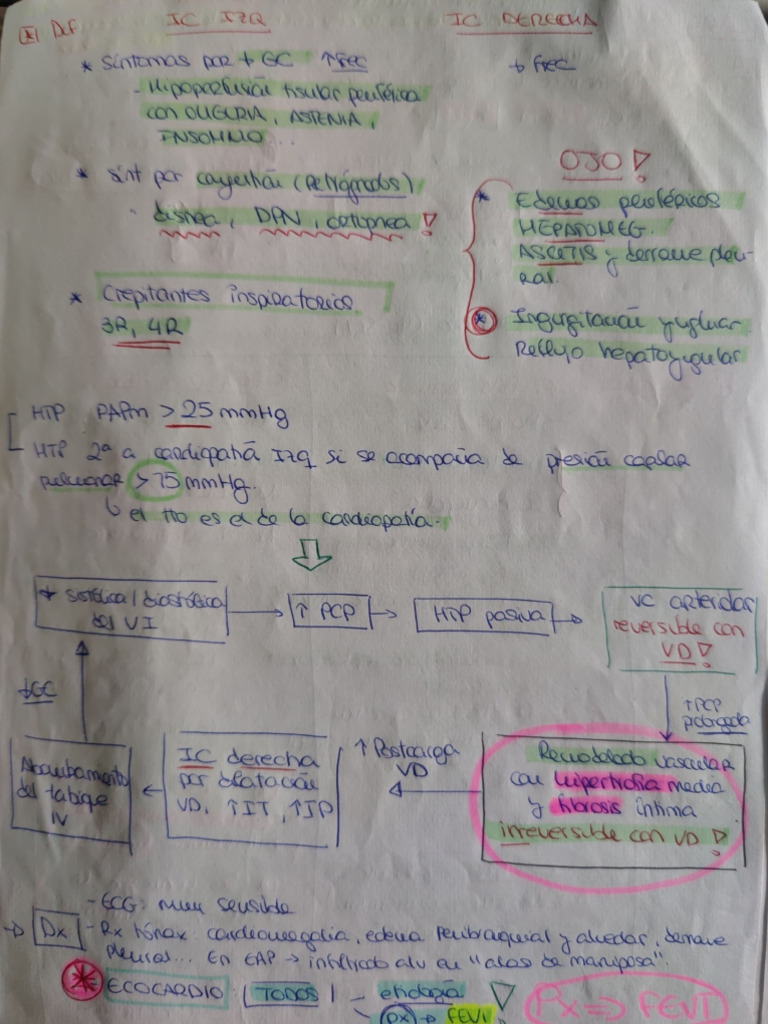 * Def IC IZQ
* Síntomas por ↓ GC ↑ frec
- Hipoperfusión tisular periférica
con OLIGURIA, ASTENIA,
INSOMNIO...
* Sínt por congestión (retrógrados)
- disnea, DPN, ortopnea!
* Crepitantes inspiratorios
3R, 4R
IC DERECHA
↓ frec
OJO!
* Edemas periféricos
HEPATOMEG.
ASCITIS y derrame pleu-
ral.
* Ingurgitación yugular
Reflujo hepatoyugular
HTP PAPm > 25 mmHg
HTP 2ª a cardiopatía Izq si se acompaña de presión capilar
pulmonar > 15 mmHg.
↳ el tto es el de la cardiopatía.
↓ sistólica / diastólica
del VI
→ ↑ PCP → HTP pasiva →
VC arteriolar
reversible con
VD!
↑ PCP
prolongada
Remodelado vascular
con hipertrofia media
y fibrosis íntima
irreversible con VD!
↑ Postcarga
VD
IC derecha
por dilatación
VD, ↑ IT, ↑ IP
Abombamiento
del tabique
IV
↓ GC
→ Dx
- ECG: muy sensible
- Rx tórax: cardiomegalia, edema peribronquial y alveolar, derrame
pleural... En EAP → infiltrado alv en "alas de mariposa".
* ECOCARDIO (TODOS) - etiología
↳ Px → FEVI
Px ⇒ FEVI